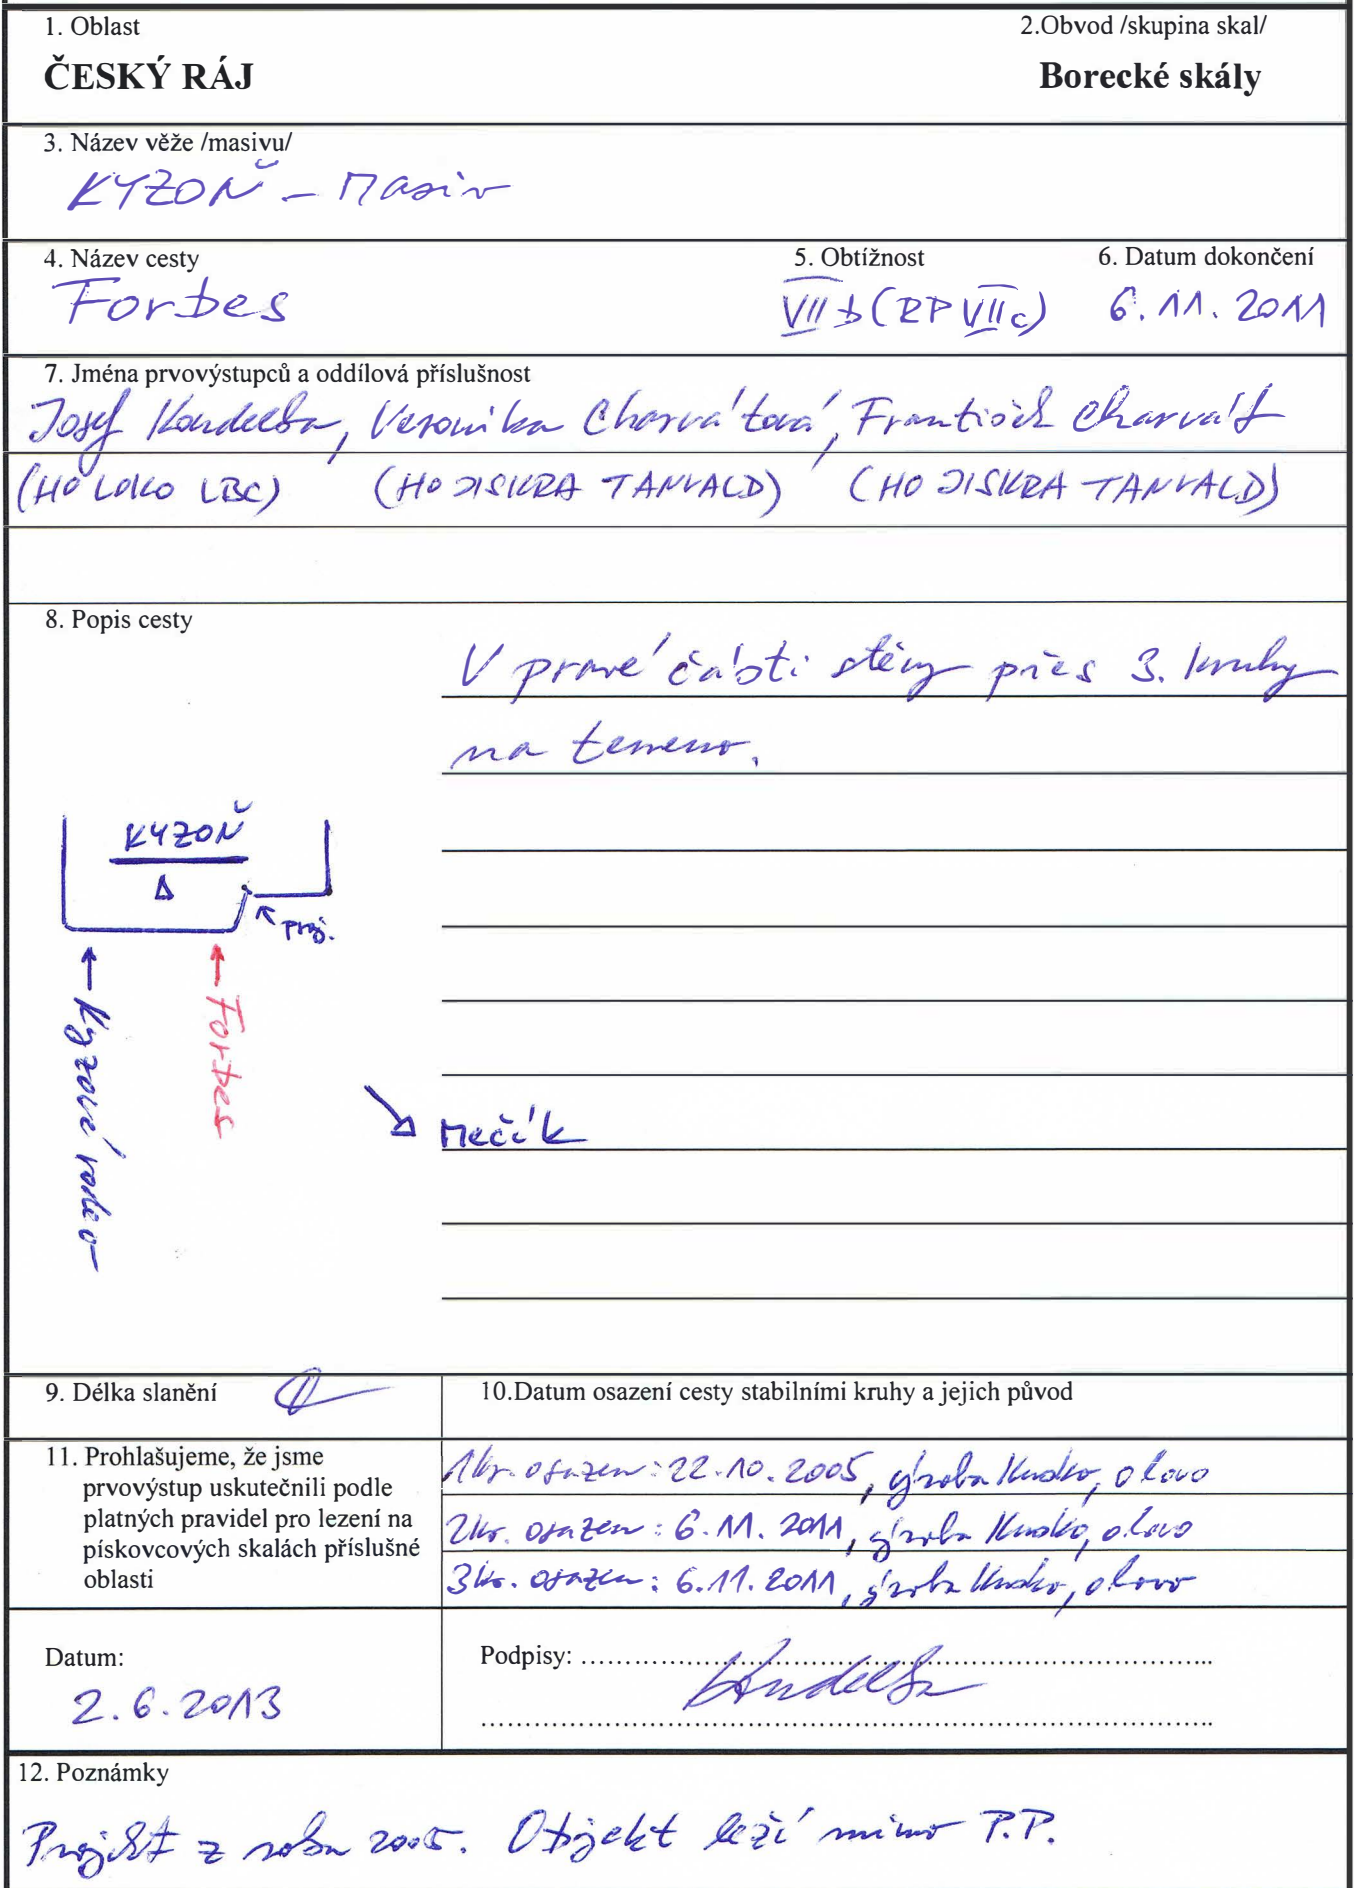 1. Oblast 2.Obvod /skupina skal/
ČESKÝ RÁJ Borecké skály
3. Název věže /masivu/
KYZOŇ - Masiv
4. Název cesty 5. Obtížnost 6. Datum dokončení
Forbes VIIb (RP VIIc) 6. 11. 2011
7. Jména prvovýstupců a oddílová příslušnost
Josef Koudelka, Veronika Charvátová, František Charvát
(HO LOKO LBC) (HO JISKRA TANVALD) (HO JISKRA TANVALD)
8. Popis cesty
V pravé části stěny přes 3. kruhy
na temeno.
KYZOŇ
proj.
Forbes
Kyzové rodeo
Mečík
9. Délka slanění 10.Datum osazení cesty stabilními kruhy a jejich původ
11. Prohlašujeme, že jsme
prvovýstup uskutečnili podle
platných pravidel pro lezení na
pískovcových skalách příslušné
oblasti
1kr. osazen: 22.10.2005, výroba, olovo
2kr. osazen: 6.11. 2011, výroba, olovo
3kr. osazen: 6.11.2011, výroba, olovo
Datum: Podpisy:
2.6.2013 Koudelka
12. Poznámky
Projekt z roku 2005. Objekt leží mimo P.P.